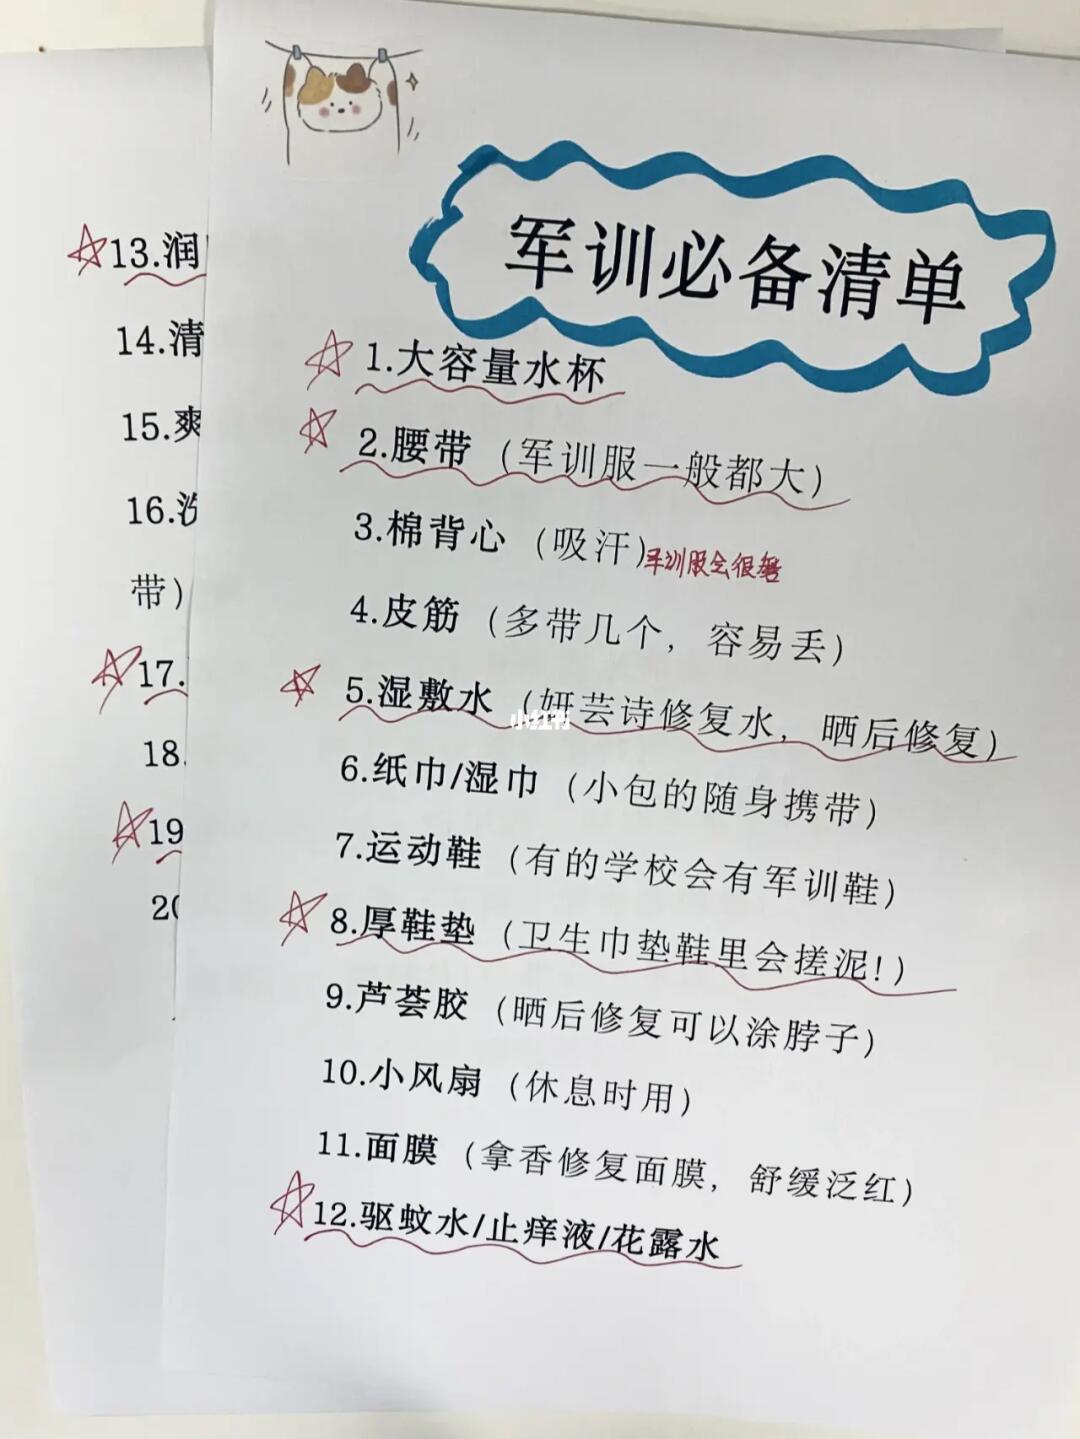 军训必备清单
1.大容量水杯
2.腰带（军训服一般都大）
3.棉背心（吸汗）军训服会很
4.皮筋（多带几个，容易丢）
5.湿敷水（妍芸诗修复水，晒后修复）
小红书
6.纸巾/湿巾（小包的随身携带）
7.运动鞋（有的学校会有军训鞋）
8.厚鞋垫（卫生巾垫鞋里会搓泥!）
9.芦荟胶（晒后修复可以涂脖子）
10.小风扇（休息时用）
11.面膜（拿香修复面膜，舒缓泛红）
12.驱蚊水/止痒液/花露水
13.润
14.清
15.爽
16.洗
带）
17.
18.
19
20